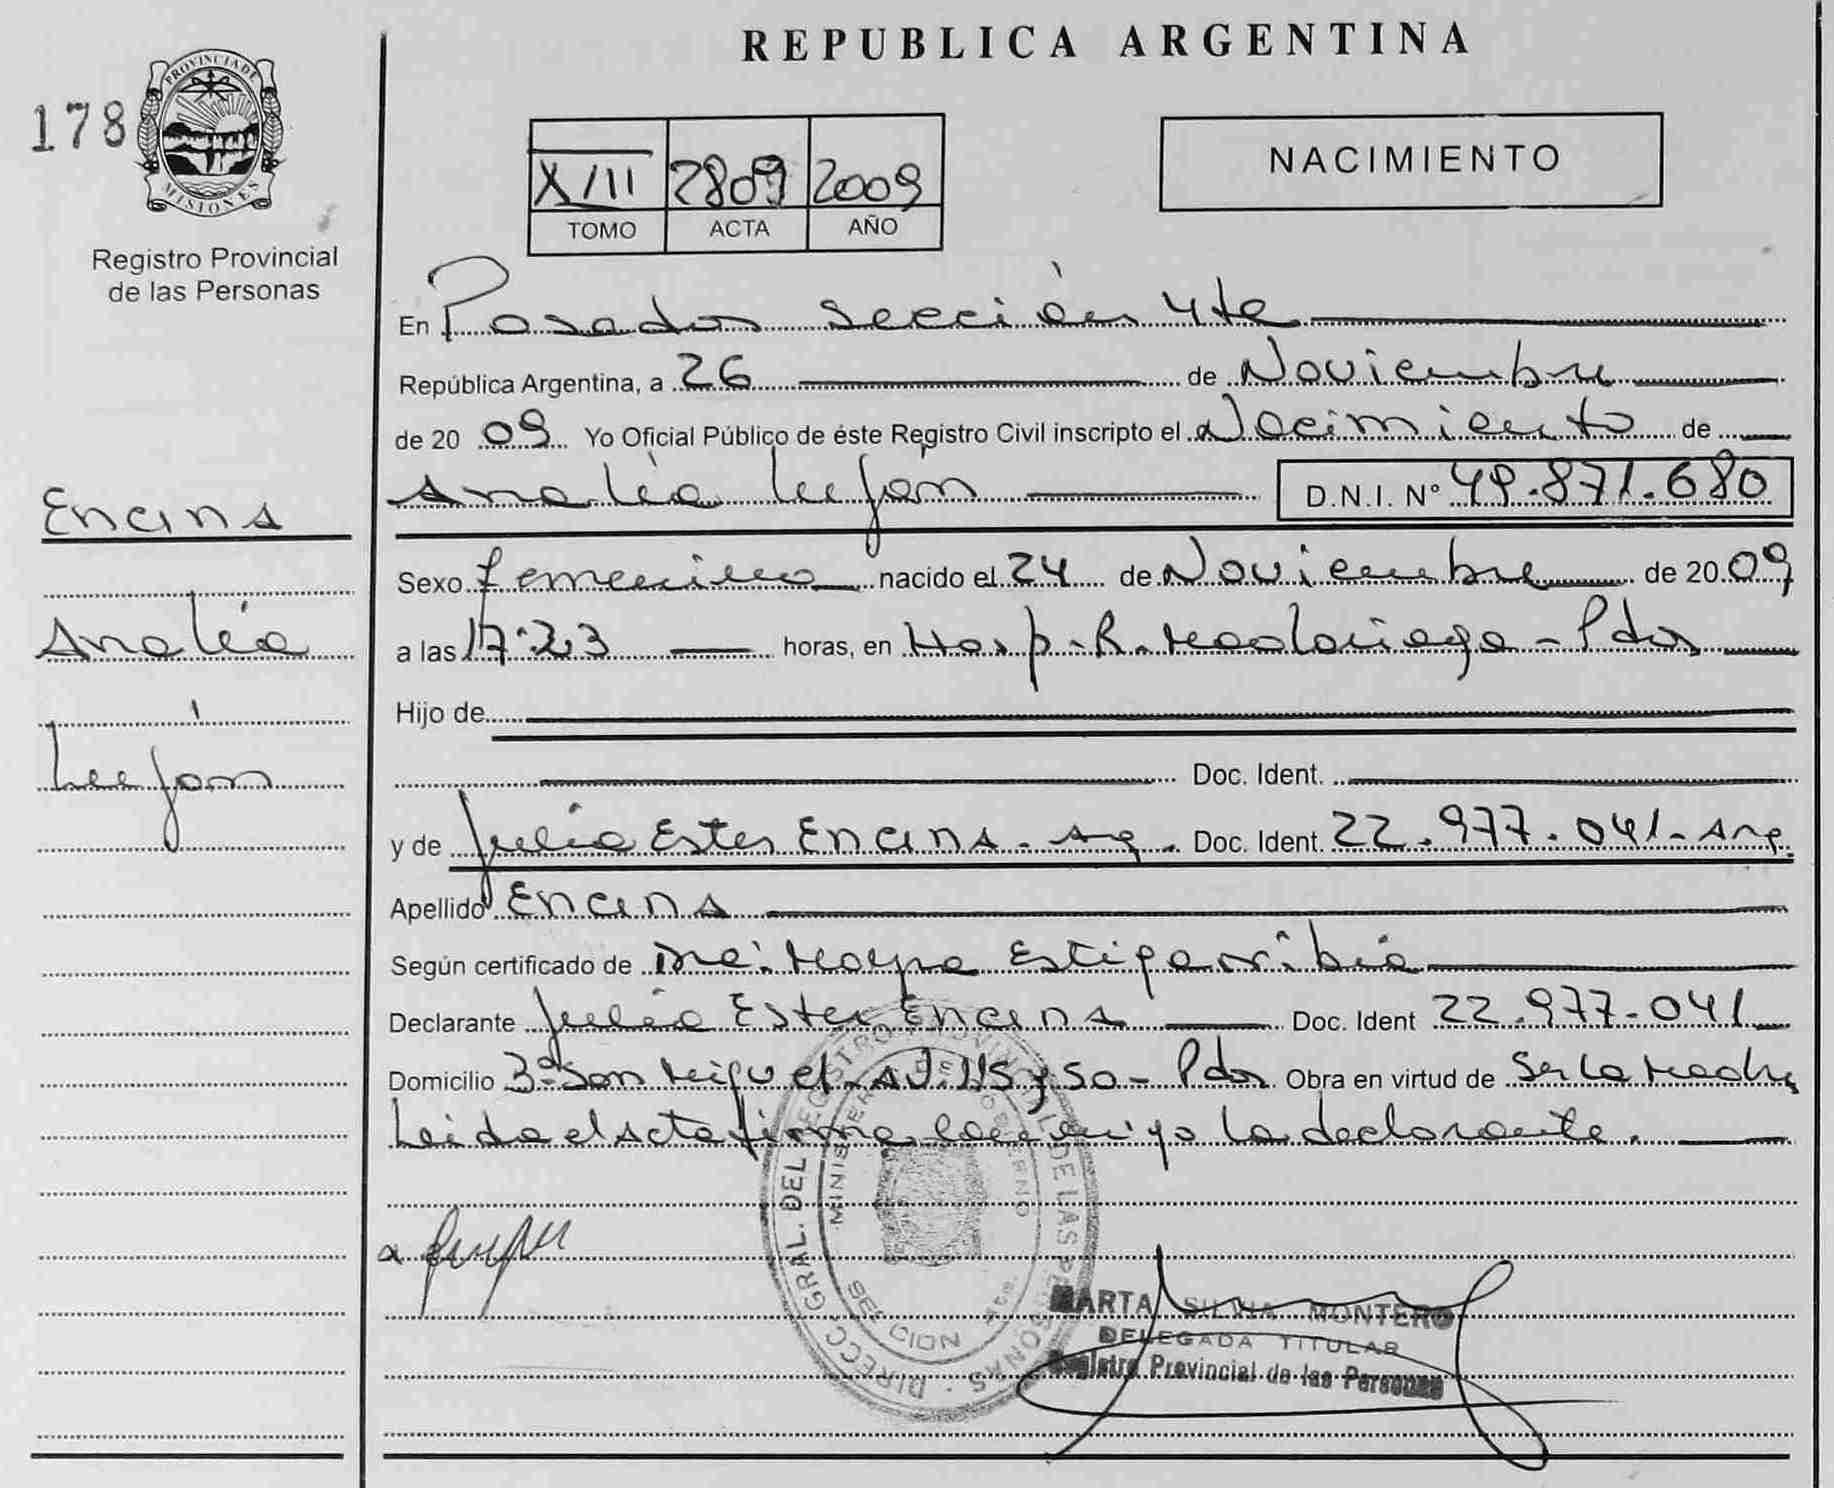 REPUBLICA ARGENTINA
178
PROVINCIA DE
MISIONES
Registro Provincial
de las Personas
NACIMIENTO
XIII 2809 2009
TOMO ACTA AÑO
En Posadas Sección 4ta
República Argentina, a 26 de Noviembre
de 20 09 Yo Oficial Público de éste Registro Civil inscripto el Nacimiento de
Analía Luján D.N.I. Nº 49.871.680
Encina
Analía
Luján
Sexo femenino nacido el 24 de Noviembre de 20 09
a las 17:23 horas, en Hosp. R. Madariaga - Pdas
Hijo de
Doc. Ident.
y de Julia Ester Encina - Arg. Doc. Ident. 22.977.041 - Arg.
Apellido Encina
Según certificado de Mayra Estigarribia
Declarante Julia Ester Encina Doc. Ident 22.977.041
Domicilio San Miguel 115 y 50 - Pdas Obra en virtud de Ser la Madre
Leida el Acta firma conmigo la declarante.
DIRECC. GRAL. DEL REGISTRO PROVINCIAL DE LAS PERSONAS
MINISTERIO DE GOBIERNO
MARTA SILVIA MONTERO
DELEGADA TITULAR
Registro Provincial de las Personas